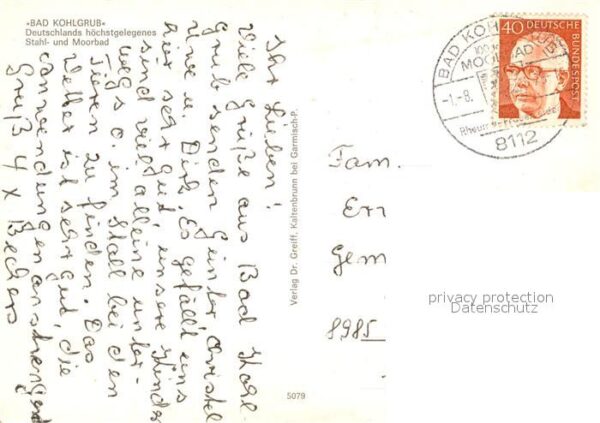 »BAD KOHLGRUB«
Deutschlands höchstgelegenes
Stahl- und Moorbad
Ihr Lieben!
Viele Grüße aus Bad Kohl-
grub senden Günter, Christel
Uwe u. Dirk. Es gefällt uns
hier sehr gut, unsere Kinder
sind viel alleine unter-
wegs o. im Stall bei den
Tieren zu finden. Das
Wetter ist sehr gut, die
anwendungen anstrengend
Gruß 4 x Beckers
Verlag Dr. Greiff, Kaltenbrunn bei Garmisch-P.
5079
BAD KOHLGRUB
MOORBAD
-1.-8.
8112
40
DEUTSCHE
BUNDESPOST
Fam.
Err
Gem
8985
privacy protection
Datenschutz